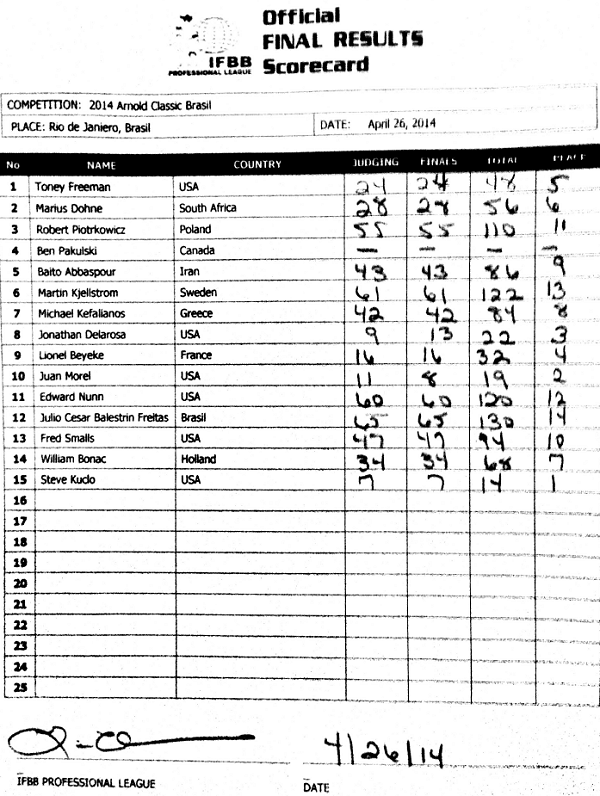 Official
FINAL RESULTS
Scorecard
IFBB
PROFESSIONAL LEAGUE
COMPETITION: 2014 Arnold Classic Brasil
PLACE: Rio de Janiero, Brasil DATE: April 26, 2014
No NAME COUNTRY JUDGING FINALS TOTAL PLACE
1 Toney Freeman USA 24 24 48 5
2 Marius Dohne South Africa 28 28 56 6
3 Robert Piotrkowicz Poland 55 55 110 11
4 Ben Pakulski Canada — — — —
5 Baito Abbaspour Iran 43 43 86 9
6 Martin Kjellstrom Sweden 61 61 122 13
7 Michael Kefalianos Greece 42 42 84 8
8 Jonathan Delarosa USA 9 13 22 3
9 Lionel Beyeke France 16 16 32 4
10 Juan Morel USA 11 8 19 2
11 Edward Nunn USA 60 60 120 12
12 Julio Cesar Balestrin Freitas Brasil 65 65 130 14
13 Fred Smalls USA 47 47 94 10
14 William Bonac Holland 34 34 68 7
15 Steve Kuclo USA 7 7 14 1
16
17
18
19
20
21
22
23
24
25
4/26/14
IFBB PROFESSIONAL LEAGUE DATE